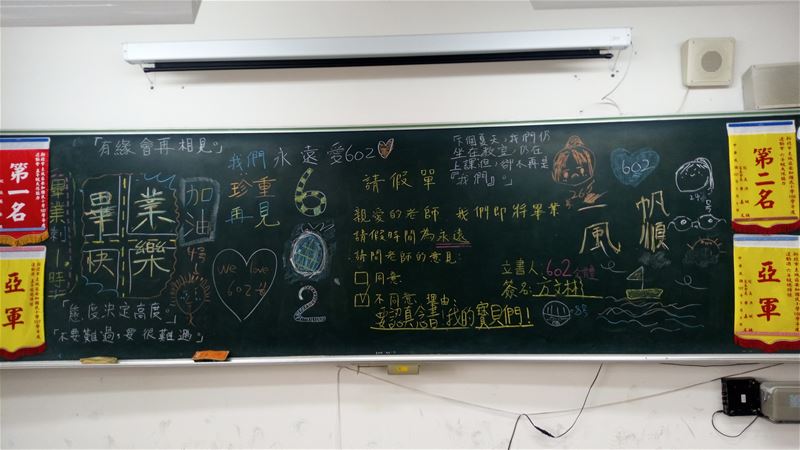 第一名
亞軍
「有緣會再相見」
畢業
快樂
加油
4号
「態度決定高度」
「不要難過，要很難過」
我們永遠愛602
珍重
再見
6
0
2
We love
602
請假單
親愛的老師 我們即將畢業
請假時間為永遠
請問老師的意見：
同意
不同意，理由：
要認真念書！我的寶貝們！
立書人：602全體
簽名：
「下個夏天，我們仍
坐在教室，仍在
上課，卻不再是
『我們』。」
602
一帆
風順
第二名
亞軍